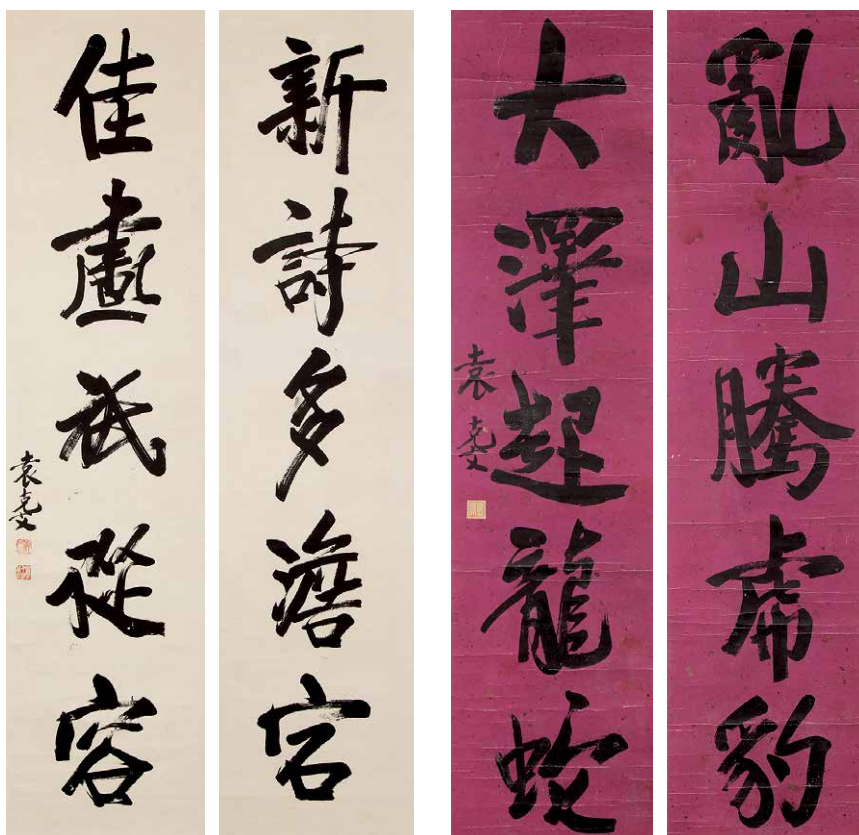 亂山騰虎豹
大澤起龍蛇
袁克文
新詩多澹宕
佳畫祇從容
袁克文